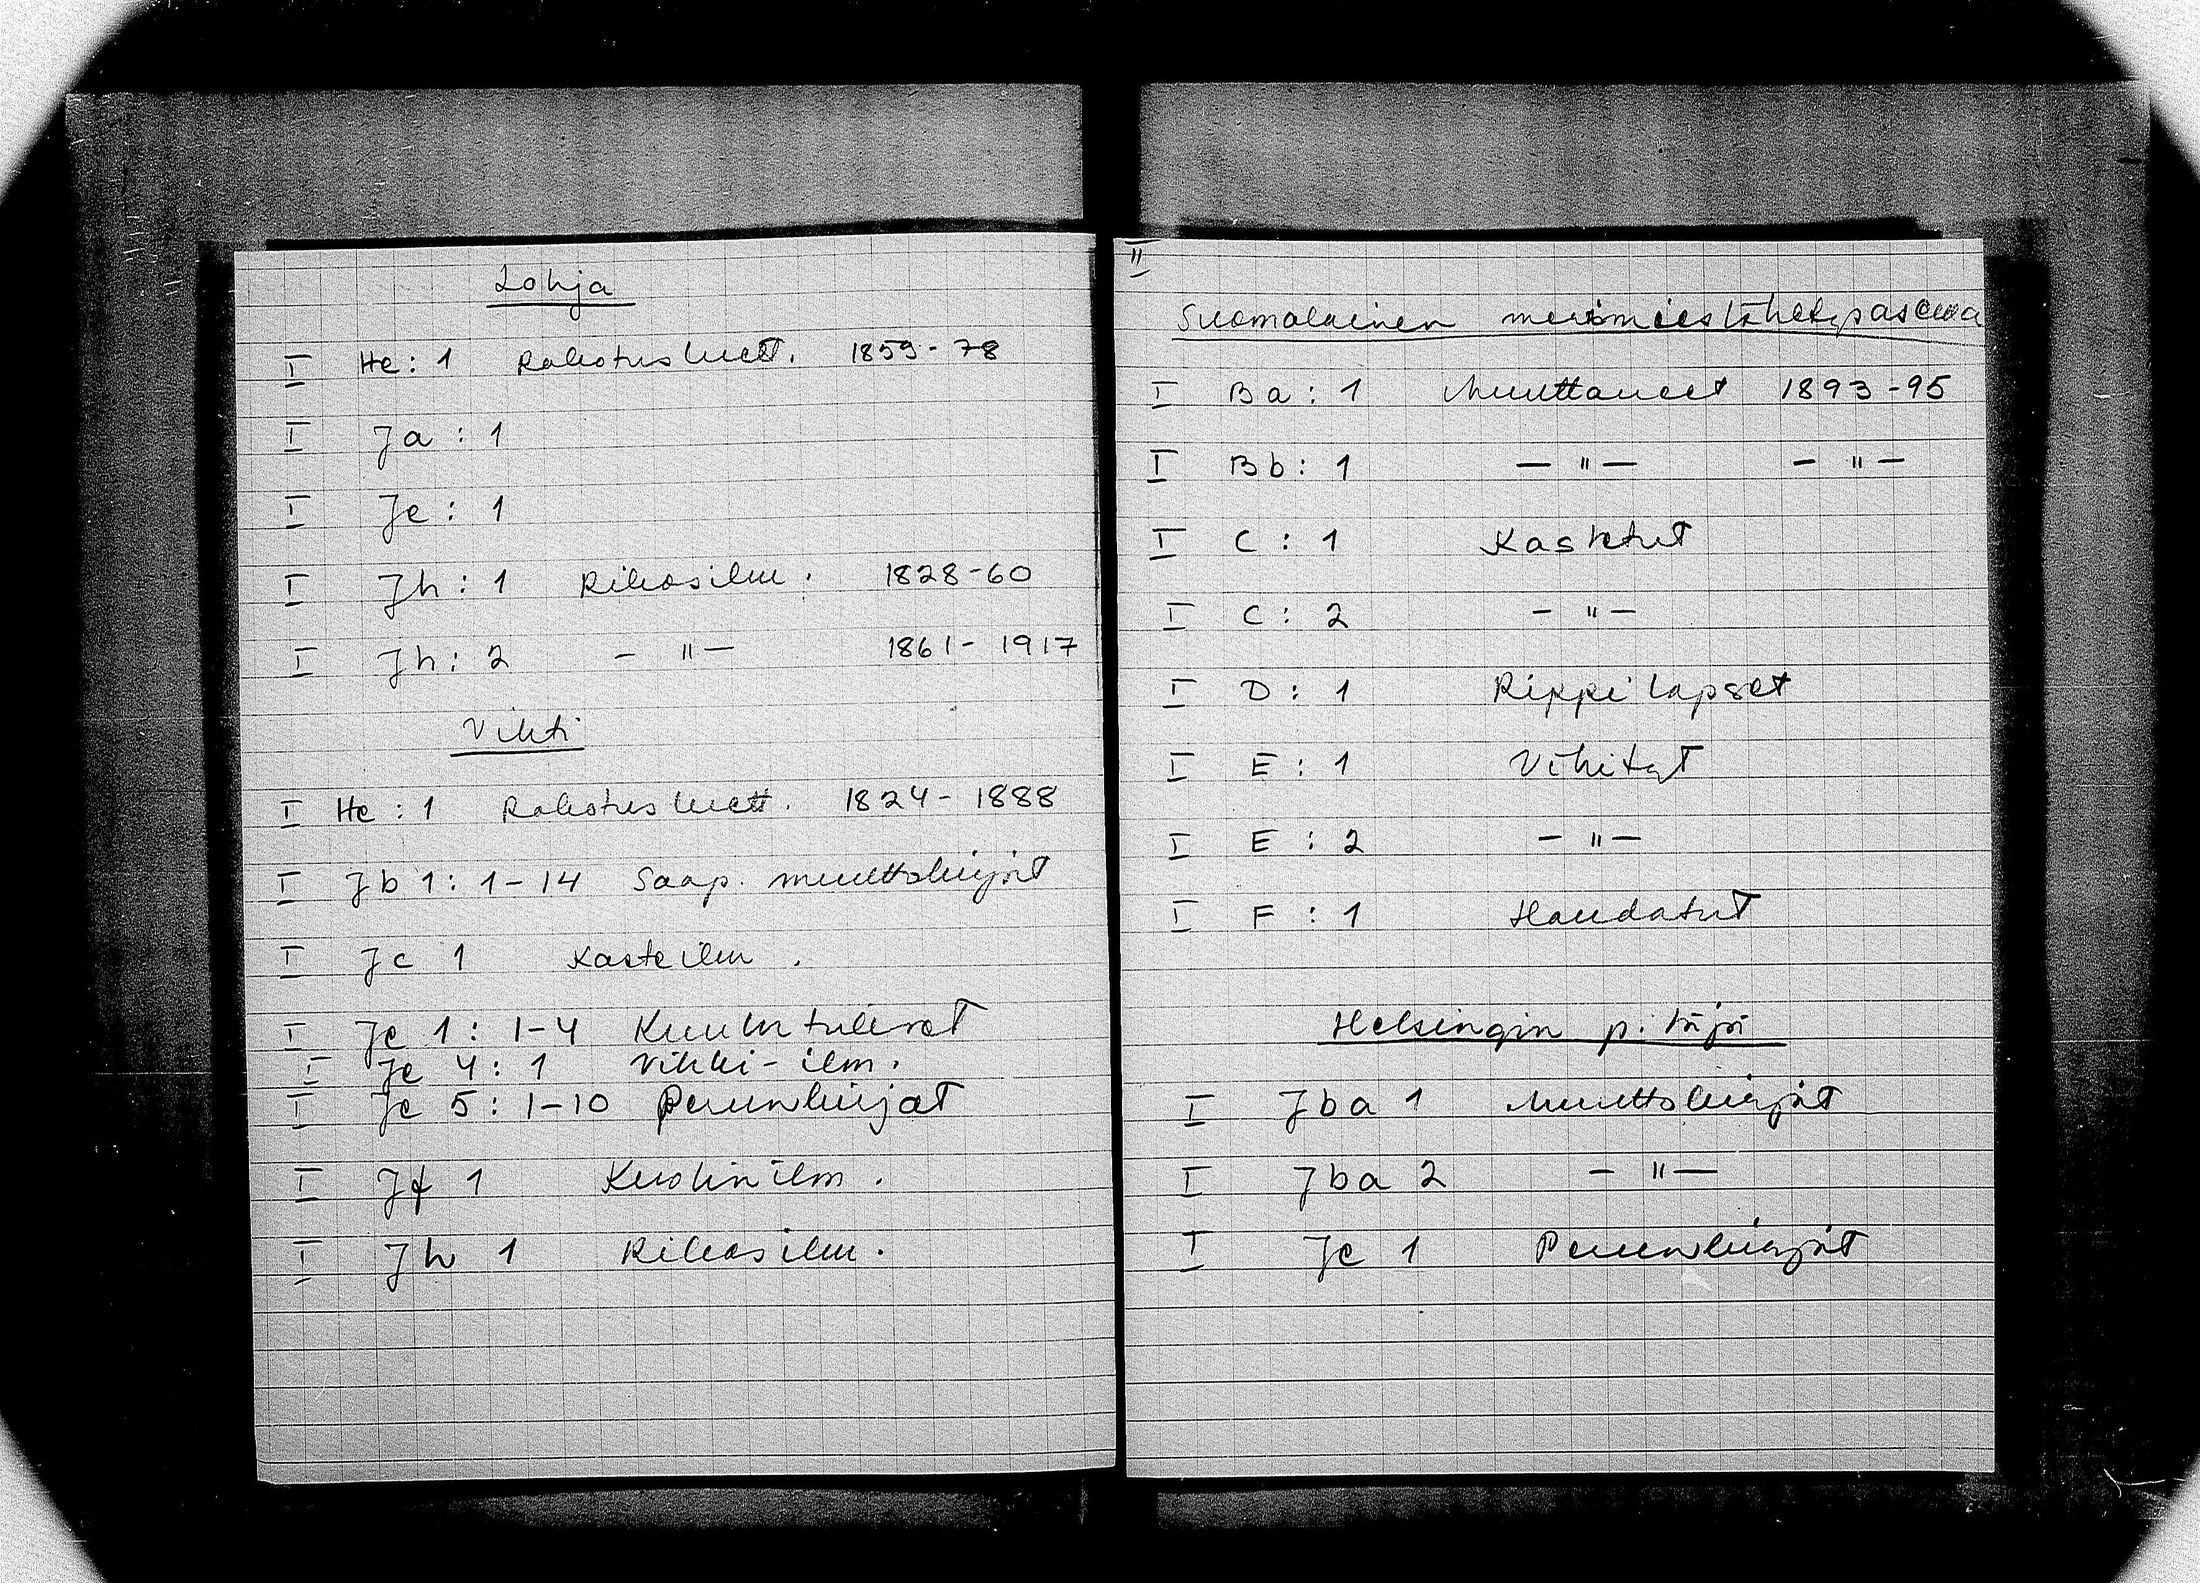 Lohja
I He: 1 Rokotusluett. 1859-78
I Ja : 1
I Je : 1
I Jh : 1 Rikosilm. 1828-60
I Jh : 2 - " - 1861-1917
Vihti
I He : 1 Rokotusluett. 1824-1888
I Jb 1: 1-14 Saap. muuttokirjat
I Jc 1 Kasteilm.
I Je 1: 1-4 Kuulutuskirjat
I Je 4: 1 Vihki-ilm.
I Je 5: 1-10 Perunkirjat
I Jf 1 Kuolinilm.
I Jh 1 Rikosilm.
II
Suomalainen merimieslähetysasema
I Ba : 1 Muuttaneet 1893-95
I Bb : 1 - " - - " -
I C : 1 Kastetut
I C : 2 - " -
I D : 1 Rippilapset
I E : 1 Vihityt
I E : 2 - " -
I F : 1 Haudatut
Helsingin pitäjä
I Jba 1 Muuttokirjat
I Jba 2 - " -
I Je 1 Perunkirjat